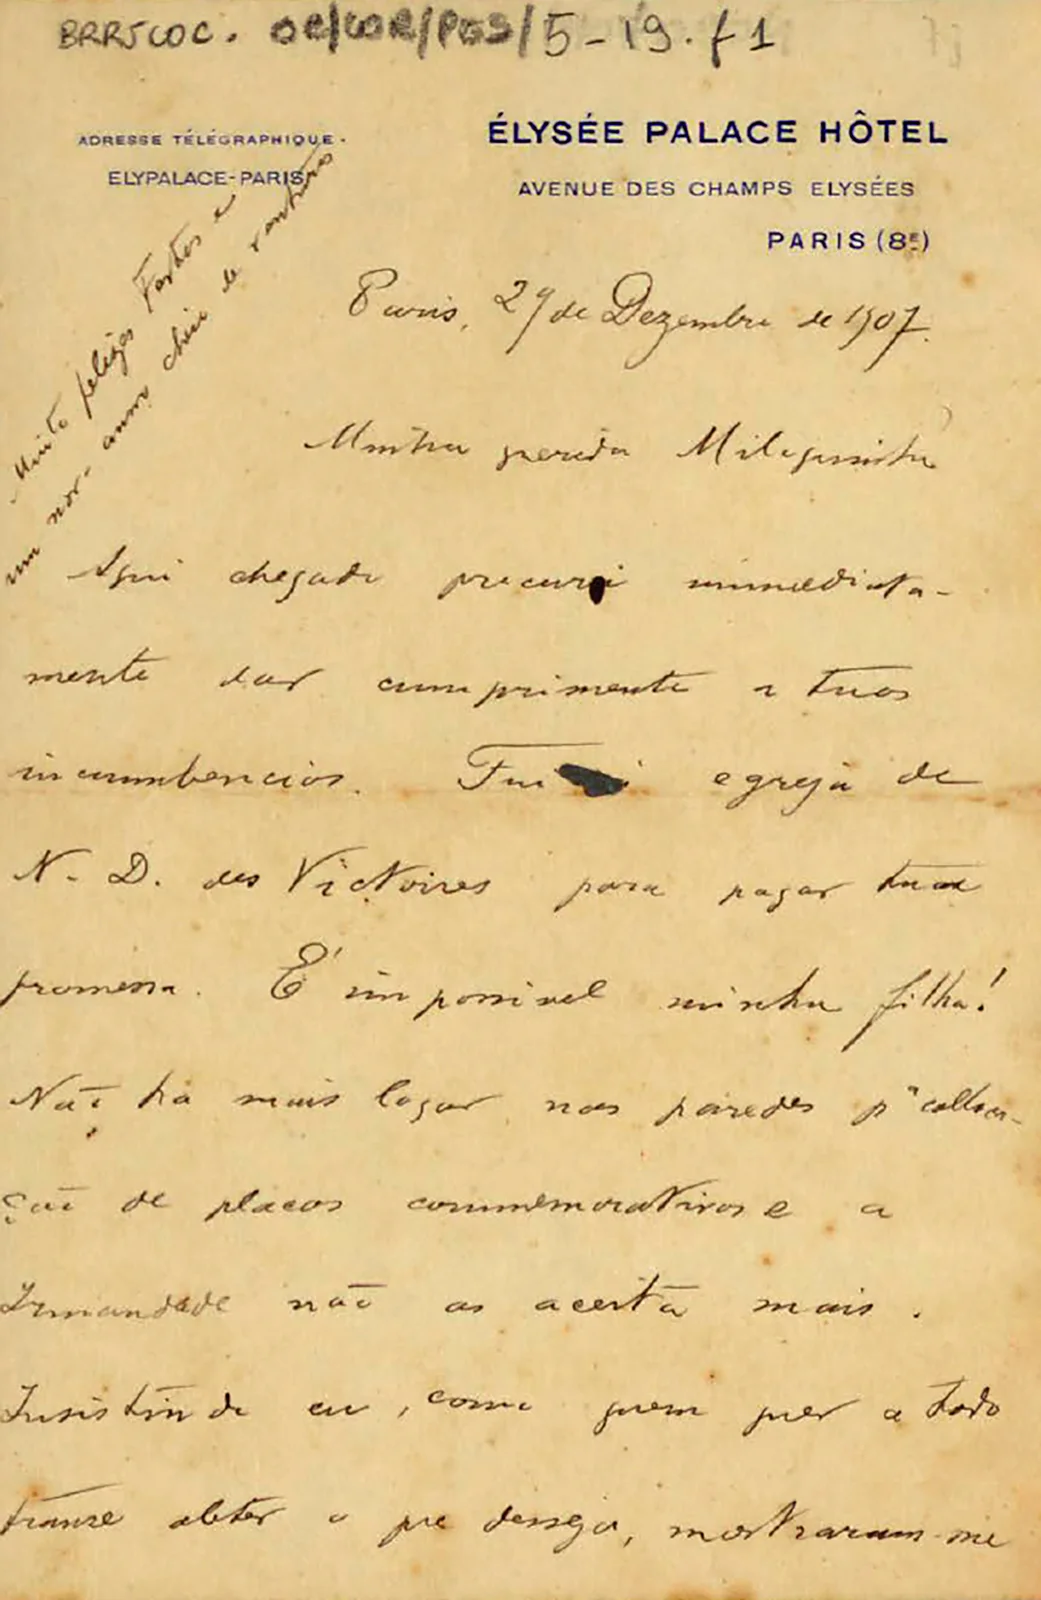 BRRJCOC. OC/COR/PGS/5-19.f1
ADRESSE TÉLÉGRAPHIQUE.
ELYPALACE-PARIS
ÉLYSÉE PALACE HÔTEL
AVENUE DES CHAMPS ELYSÉES
PARIS (8E)
Muito felizes Festas e
um novo anno cheio de venturas
Paris, 29 de Dezembro de 1907.
Minha querida
Aqui chegado procurei immediata-
mente dar cumprimento a tuas
incumbencias. Fui á egreja de
N. D. des Victoires para pagar tua
promessa. É impossivel minha filha!
Não ha mais logar nas paredes pa colloca-
ção de placas commemorativas e a
Irmandade não as aceita mais.
Insistindo eu, como quem quer a todo
transe obter o que deseja, mostraram-me